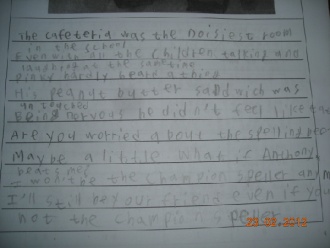 The cafeteria was the noisiest room
in the school
Even with all the children talking and
laughing at the sametime
Pinky hardly heard a thing
His peanut butter sandwich was
un touched
Being nervous he didn't feel like
Are you worried about the spelling bee
Maybe a little What is Anthony
beats me
won't be the champion speller
I'll still be your friend even if
not the champion speller
23 05 2012